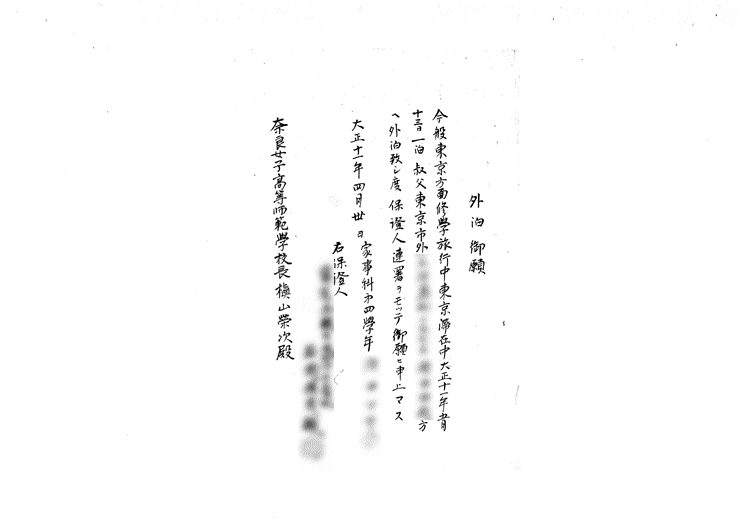 外泊御願
今般東京方面修學旅行中東京滯在中大正十一年五月
十三日一泊叔父東京市外 方
へ外泊致シ度保證人連署ヲモッテ御願ヒ申上マス
大正十一年四月丗日家事科第四學年
右保證人
奈良女子高等師範學校長槇山榮次殿